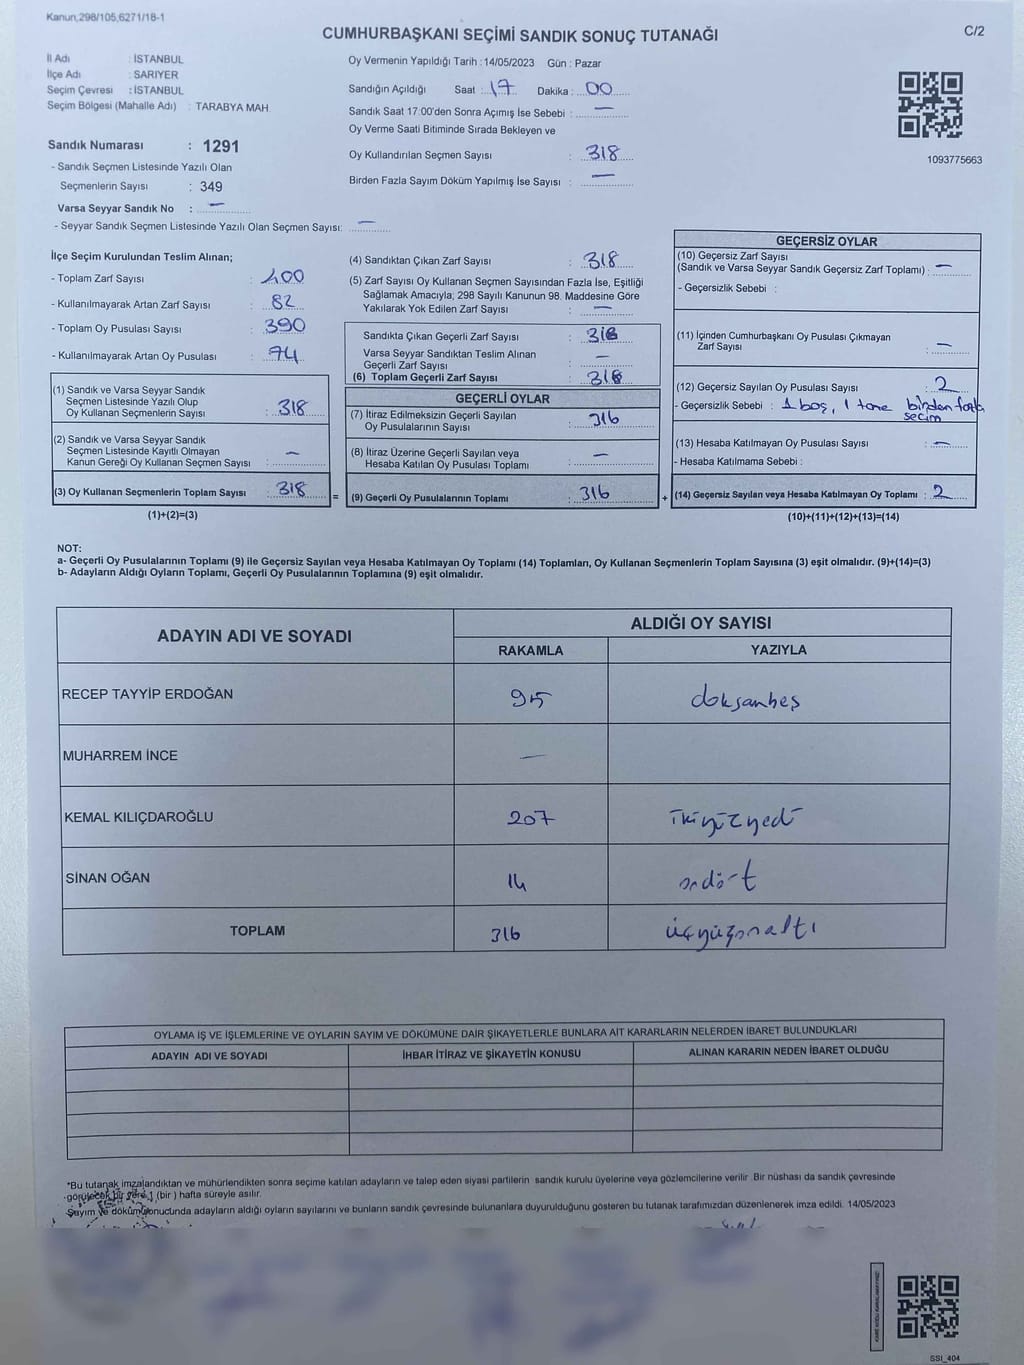 Kanun,298/105,6271/18-1
CUMHURBAŞKANI SEÇİMİ SANDIK SONUÇ TUTANAĞI
C/2
İl Adı : İSTANBUL
İlçe Adı : SARIYER
Seçim Çevresi : İSTANBUL
Seçim Bölgesi (Mahalle Adı) : TARABYA MAH
Sandık Numarası : 1291
- Sandık Seçmen Listesinde Yazılı Olan
Seçmenlerin Sayısı : 349
Varsa Seyyar Sandık No : —
- Seyyar Sandık Seçmen Listesinde Yazılı Olan Seçmen Sayısı: —
Oy Vermenin Yapıldığı Tarih : 14/05/2023 Gün : Pazar
Sandığın Açıldığı Saat : 17 Dakika : 00
Sandık Saat 17:00'den Sonra Açımış İse Sebebi : —
Oy Verme Saati Bitiminde Sırada Bekleyen ve
Oy Kullandırılan Seçmen Sayısı : 318
Birden Fazla Sayım Döküm Yapılmış İse Sayısı : —
1093775663
İlçe Seçim Kurulundan Teslim Alınan;
- Toplam Zarf Sayısı : 400
- Kullanılmayarak Artan Zarf Sayısı : 82
- Toplam Oy Pusulası Sayısı : 390
- Kullanılmayarak Artan Oy Pusulası : 74
(1) Sandık ve Varsa Seyyar Sandık
Seçmen Listesinde Yazılı Olup
Oy Kullanan Seçmenlerin Sayısı : 318
(2) Sandık ve Varsa Seyyar Sandık
Seçmen Listesinde Kayıtlı Olmayan
Kanun Gereği Oy Kullanan Seçmen Sayısı : —
(3) Oy Kullanan Seçmenlerin Toplam Sayısı : 318
(1)+(2)=(3)
(4) Sandıktan Çıkan Zarf Sayısı : 318
(5) Zarf Sayısı Oy Kullanan Seçmen Sayısından Fazla İse, Eşitliği
Sağlamak Amacıyla; 298 Sayılı Kanunun 98. Maddesine Göre
Yakılarak Yok Edilen Zarf Sayısı : —
Sandıkta Çıkan Geçerli Zarf Sayısı : 318
Varsa Seyyar Sandıktan Teslim Alınan
Geçerli Zarf Sayısı : —
(6) Toplam Geçerli Zarf Sayısı : 318
GEÇERLİ OYLAR
(7) İtiraz Edilmeksizin Geçerli Sayılan
Oy Pusulalarının Sayısı : 316
(8) İtiraz Üzerine Geçerli Sayılan veya
Hesaba Katılan Oy Pusulası Toplamı : —
= (9) Geçerli Oy Pusulalarının Toplamı : 316
GEÇERSİZ OYLAR
(10) Geçersiz Zarf Sayısı
(Sandık ve Varsa Seyyar Sandık Geçersiz Zarf Toplamı) : —
- Geçersizlik Sebebi :
(11) İçinden Cumhurbaşkanı Oy Pusulası Çıkmayan
Zarf Sayısı : —
(12) Geçersiz Sayılan Oy Pusulası Sayısı : 2
- Geçersizlik Sebebi : 1 boş, 1 tane birden fazla
seçim
(13) Hesaba Katılmayan Oy Pusulası Sayısı : —
- Hesaba Katılmama Sebebi :
+ (14) Geçersiz Sayılan veya Hesaba Katılmayan Oy Toplamı : 2
(10)+(11)+(12)+(13)=(14)
NOT:
a- Geçerli Oy Pusulalarının Toplamı (9) ile Geçersiz Sayılan veya Hesaba Katılmayan Oy Toplamı (14) Toplamları, Oy Kullanan Seçmenlerin Toplam Sayısına (3) eşit olmalıdır. (9)+(14)=(3)
b- Adayların Aldığı Oyların Toplamı, Geçerli Oy Pusulalarının Toplamına (9) eşit olmalıdır.
ADAYIN ADI VE SOYADI
ALDIĞI OY SAYISI
RAKAMLA YAZIYLA
RECEP TAYYİP ERDOĞAN 95 doksanbeş
MUHARREM İNCE —
KEMAL KILIÇDAROĞLU 207 ikiyüzyedi
SİNAN OĞAN 14 ondört
TOPLAM 316 üçyüzonaltı
OYLAMA İŞ VE İŞLEMLERİNE VE OYLARIN SAYIM VE DÖKÜMÜNE DAİR ŞİKAYETLERLE BUNLARA AİT KARARLARIN NELERDEN İBARET BULUNDUKLARI
ADAYIN ADI VE SOYADI İHBAR İTİRAZ VE ŞİKAYETİN KONUSU ALINAN KARARIN NEDEN İBARET OLDUĞU
*Bu tutanak imzalandıktan ve mühürlendikten sonra seçime katılan adayların ve talep eden siyasi partilerin sandık kurulu üyelerine veya gözlemcilerine verilir. Bir nüshası da sandık çevresinde
görülecek bir yere 1 (bir ) hafta süreyle asılır.
Sayım ve döküm sonucunda adayların aldığı oyların sayılarını ve bunların sandık çevresinde bulunanlara duyurulduğunu gösteren bu tutanak tarafımızdan düzenlenerek imza edildi. 14/05/2023
SSI_404